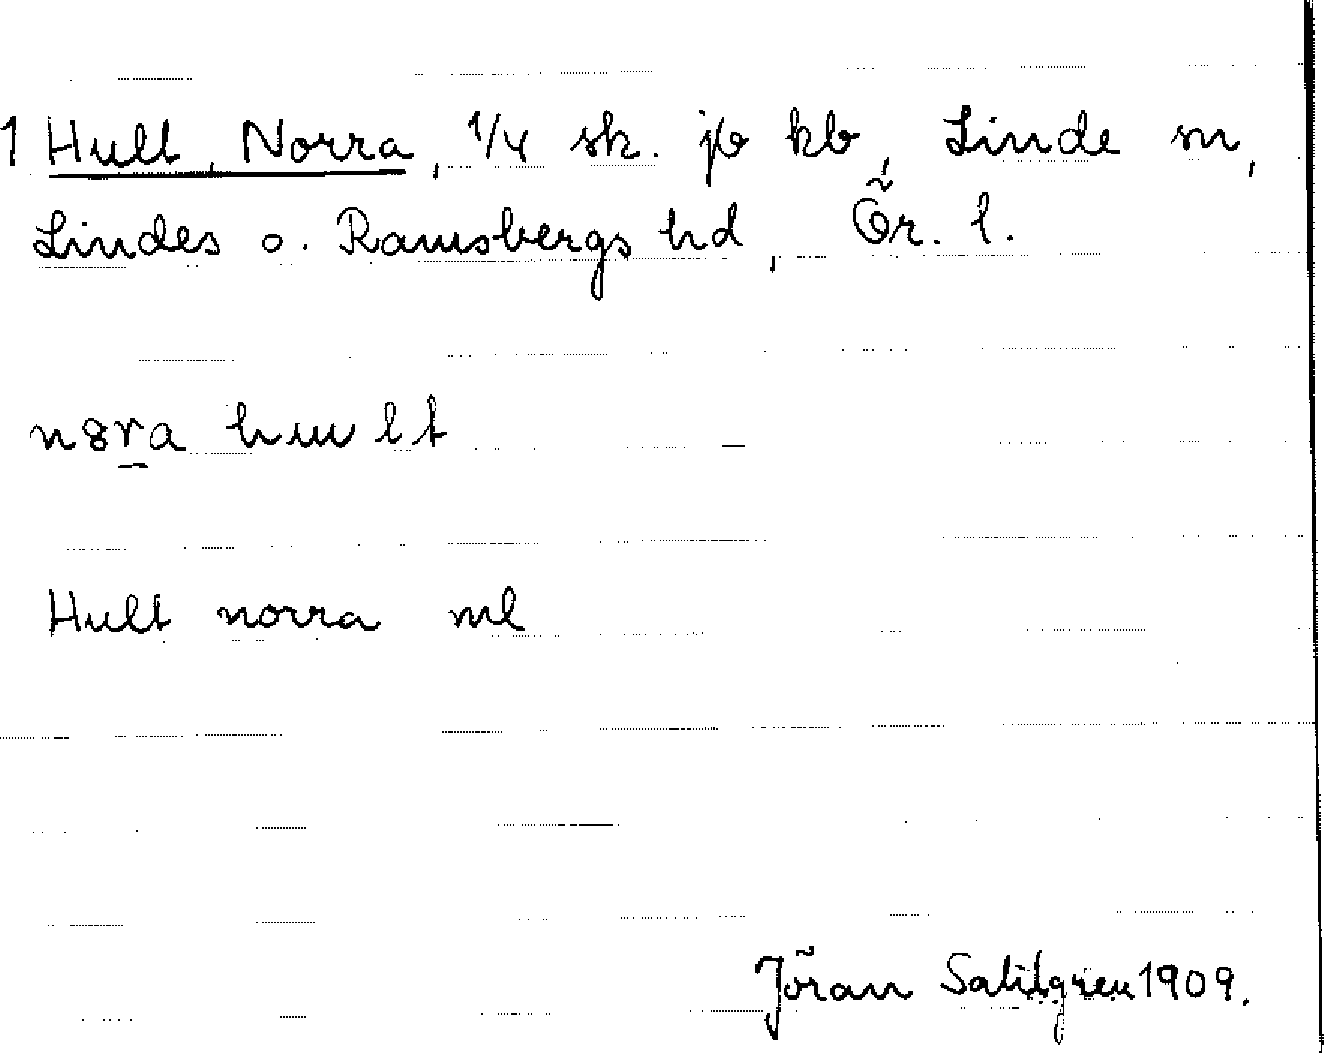 1 Hult, Norra, 1/4 sk. jb kb, Linde sn,
Lindes o. Ramsbergs hd, Ör. l.
n8ra hult
Hult norra ml
Jöran Sahlgren 1909.